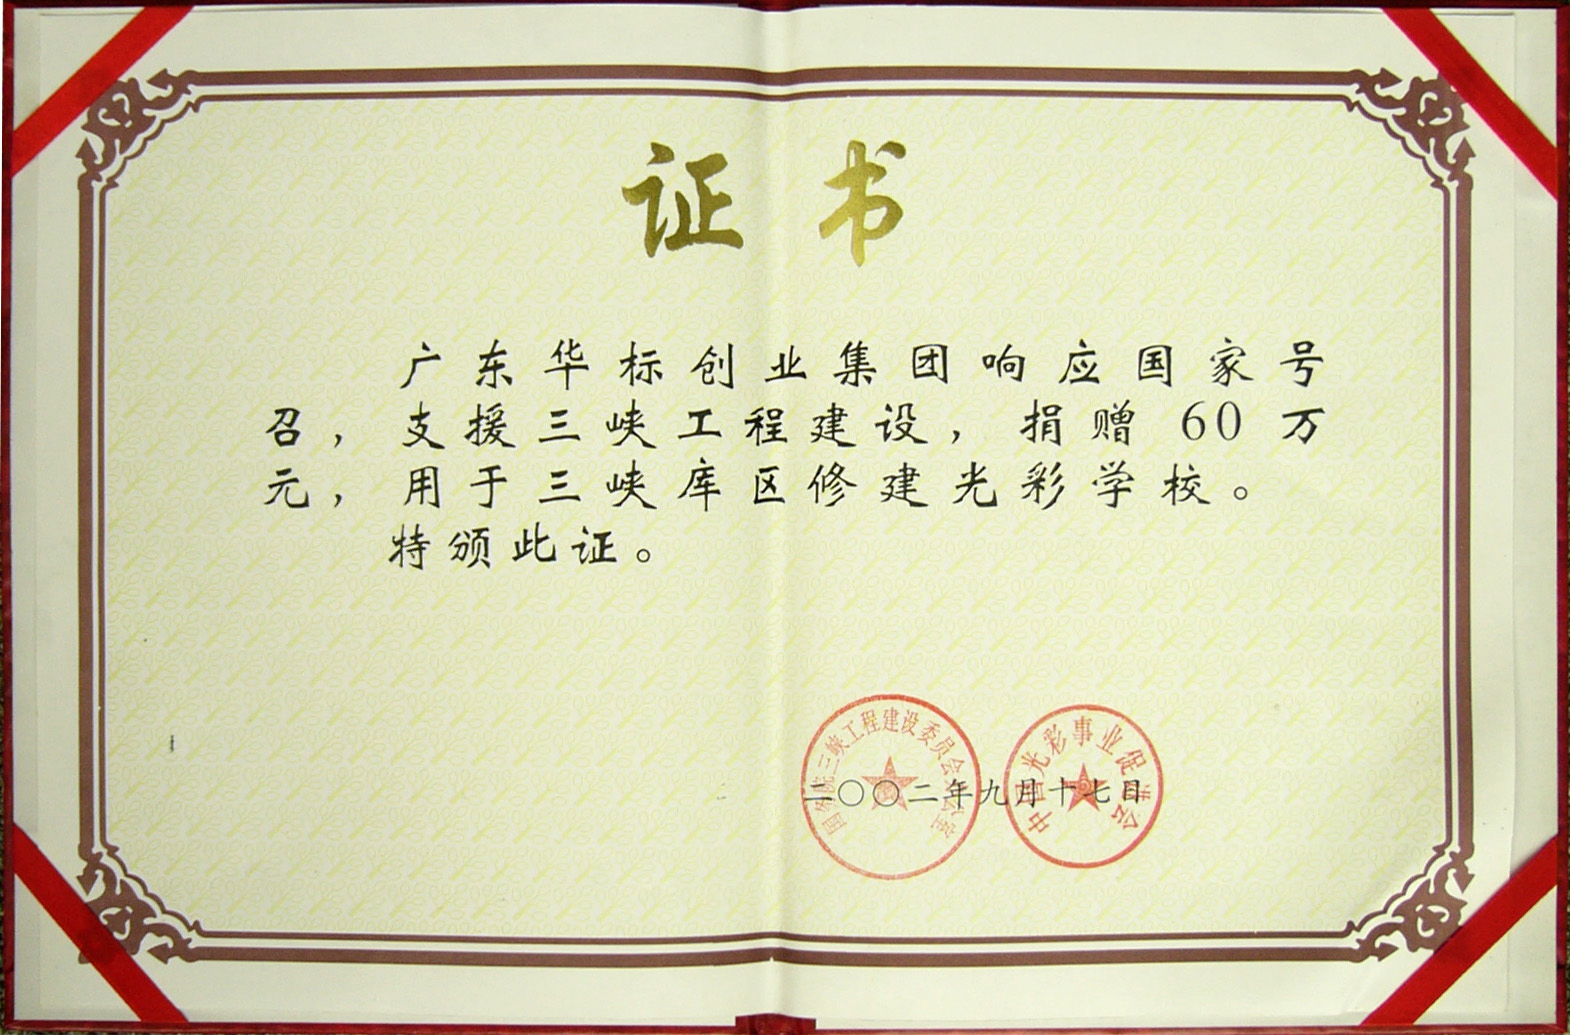 证书
广东华标创业集团响应国家号
召，支援三峡工程建设，捐赠 60 万
元，用于三峡库区修建光彩学校。
特颁此证。
国务院三峡工程建设委员会办公室
中国光彩事业促进会
二〇〇二年九月十七日